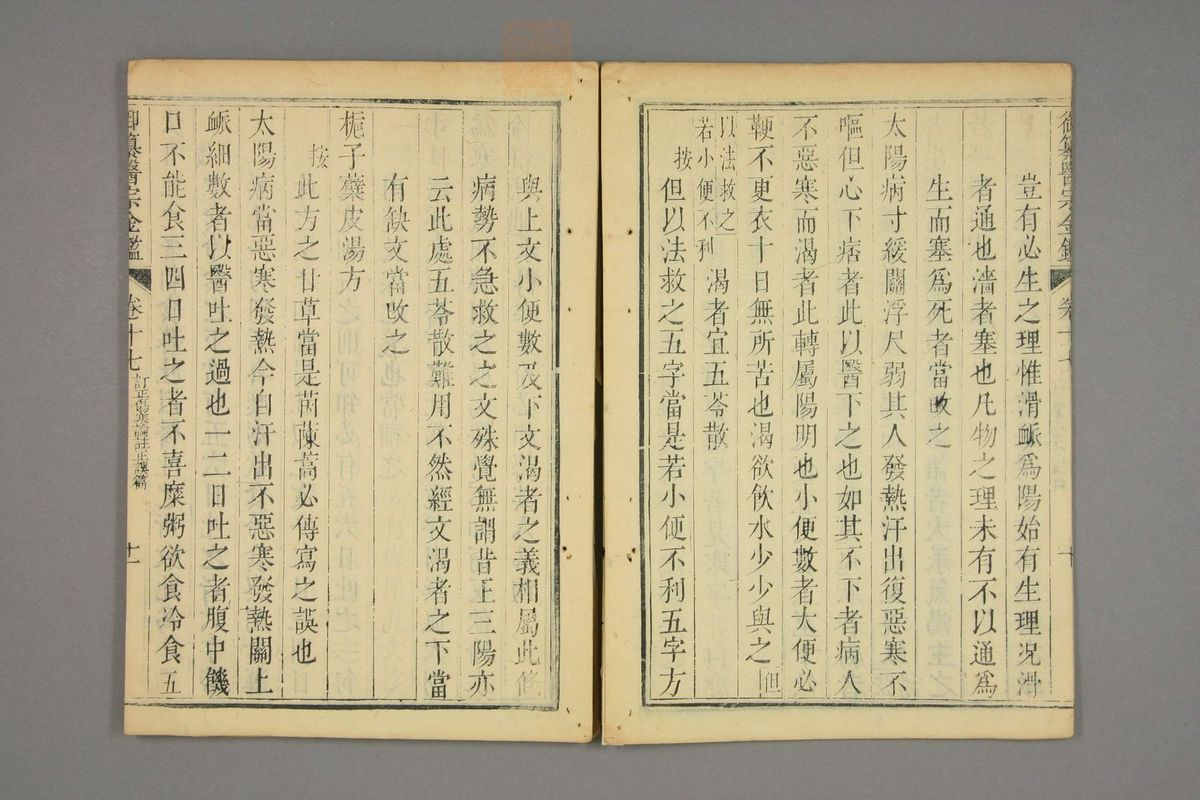 御纂醫宗金鑑 卷十七 十
豈有必生之理惟滑衇爲陽始有生理况滑
者通也濇者塞也凡物之理未有不以通爲
生而塞爲死者當攺之
太陽病寸緩關浮尺弱其人發熱汗出復惡寒不
嘔但心下痞者此以醫下之也如其不下者病人
不惡寒而渴者此轉屬陽明也小便數者大便必
鞕不更衣十日無所苦也渴欲飮水少少與之但
以法救之
若小便不利
渴者宜五苓散
按但以法救之五字當是若小便不利五字方
與上文小便數及下文渴者之義相屬此條
病勢不急救之之文殊覺無謂昔王三陽亦
云此處五苓散難用不然經文渴者之下當
有缺文當攺之
梔子蘗皮湯方
按此方之甘草當是茵蔯蒿必傳寫之誤也
太陽病當惡寒發熱今自汗出不惡寒發熱關上
衇細數者以醫吐之過也一二日吐之者腹中饑
口不能食三四日吐之者不喜糜粥欲食冷食五
御纂醫宗金鑑 卷十七 訂正傷寒論註正誤篇 十一